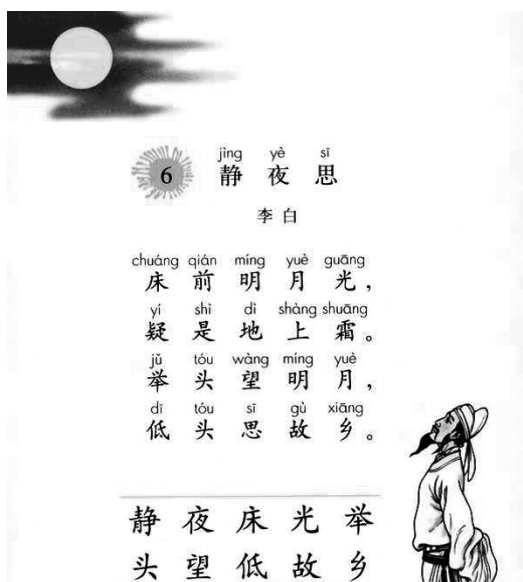 jìng yè sī
6 静夜思
李白
chuáng qián míng yuè guāng
床前明月光，
yí shì dì shàng shuāng
疑是地上霜。
jǔ tóu wàng míng yuè
举头望明月，
dī tóu sī gù xiāng
低头思故乡。
静夜床光举
头望低故乡